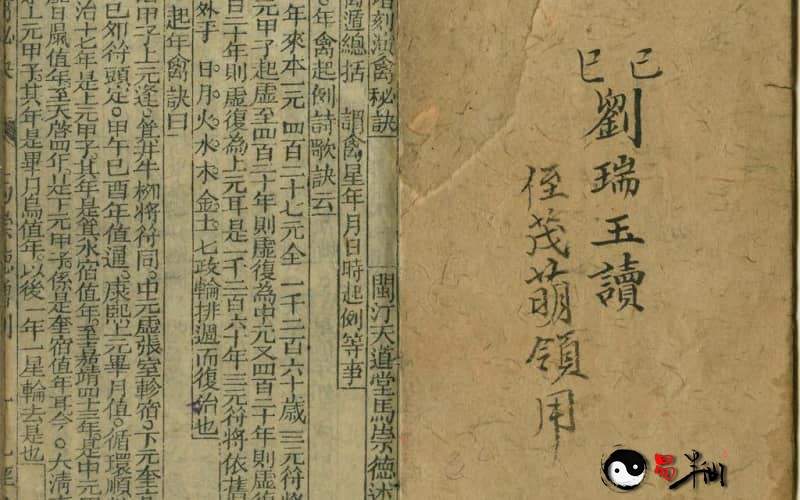 己巳
劉瑞玉讀
侄茂萌領用
刻演禽秘訣 閩汀天道堂馬崇德述
禽遁總括 謂禽星年月日時起例等事
年禽起例詩歌訣云
年來本一元 四百二十七元全 一千二百六十歲 三元符將
元甲子起虛至四百二十年則虛復為中元又四百二十年則虛
百二十年則虛復為上元耳是一千二百六十年三元符將依舊
外乎 日月火水木金土七政輪排週而復始也
起年禽訣曰
甲子上元逢箕井牛柳將符同中元虛張室軫宿下元奎
巳卯符頭定甲午巳酉年值通康熙上元畢月值循環順
治十七年是上元甲子其年是箕水宿值年至嘉靖四三年是中元
日鼠值年至天啓四年是下元甲子係是奎宿值年耳今大清
上元甲子其年是畢月烏值年以後一年一星輪去是也
易半仙